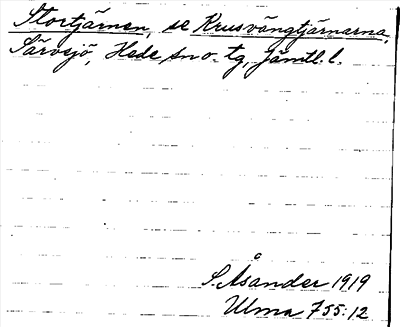 Stortjärnen, se Krusvängtjärnarna,
Särvsjö, Hede sn o. tg, Jämtl. l.
S. Åsander 1919
Ulma 755:12